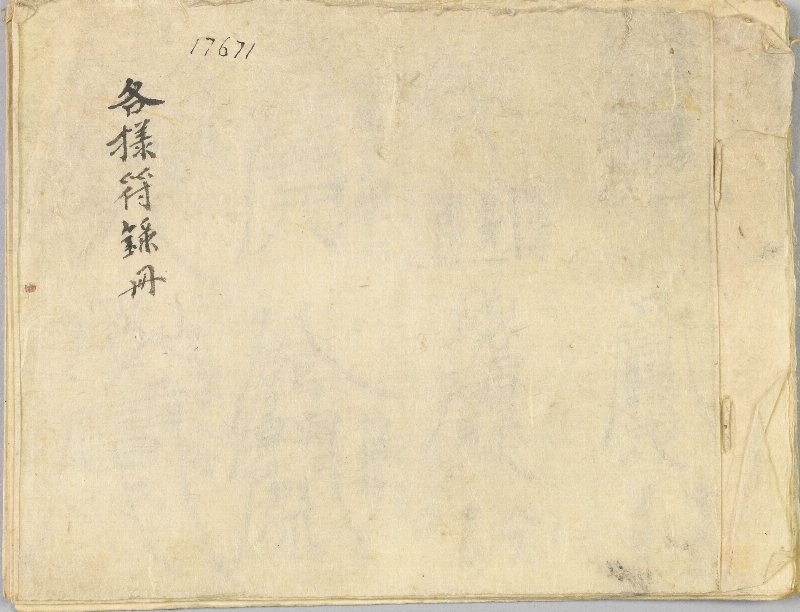 17671
各樣符錄冊